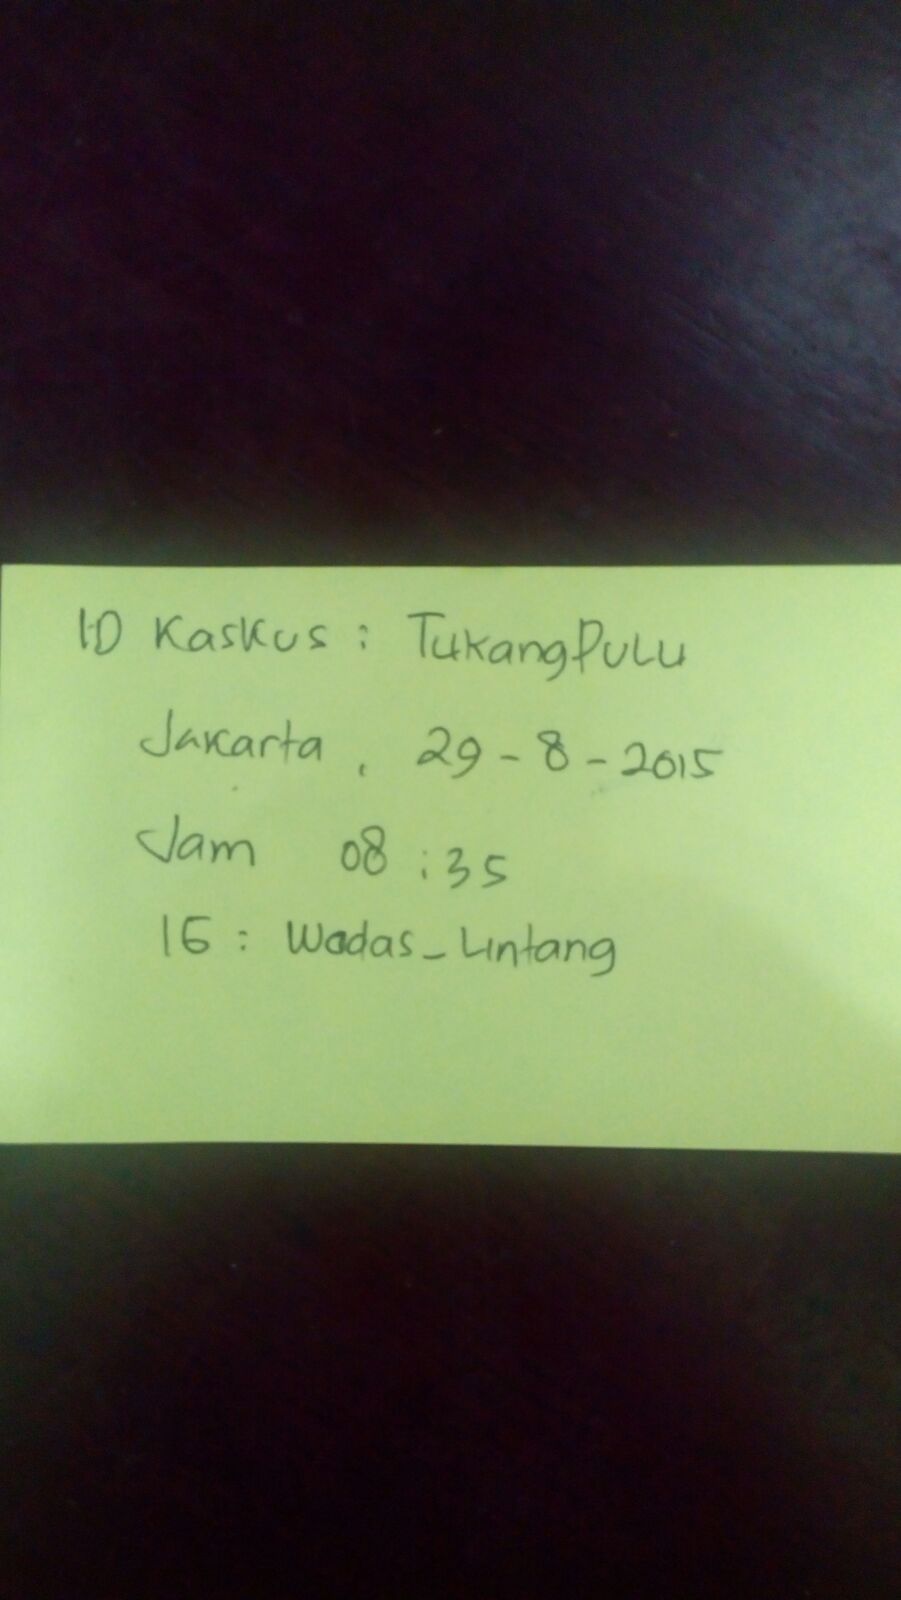 ID Kaskus : TukangPulu
Jakarta, 29-8-2015
Jam 08:35
IG : Wadas_Lintang